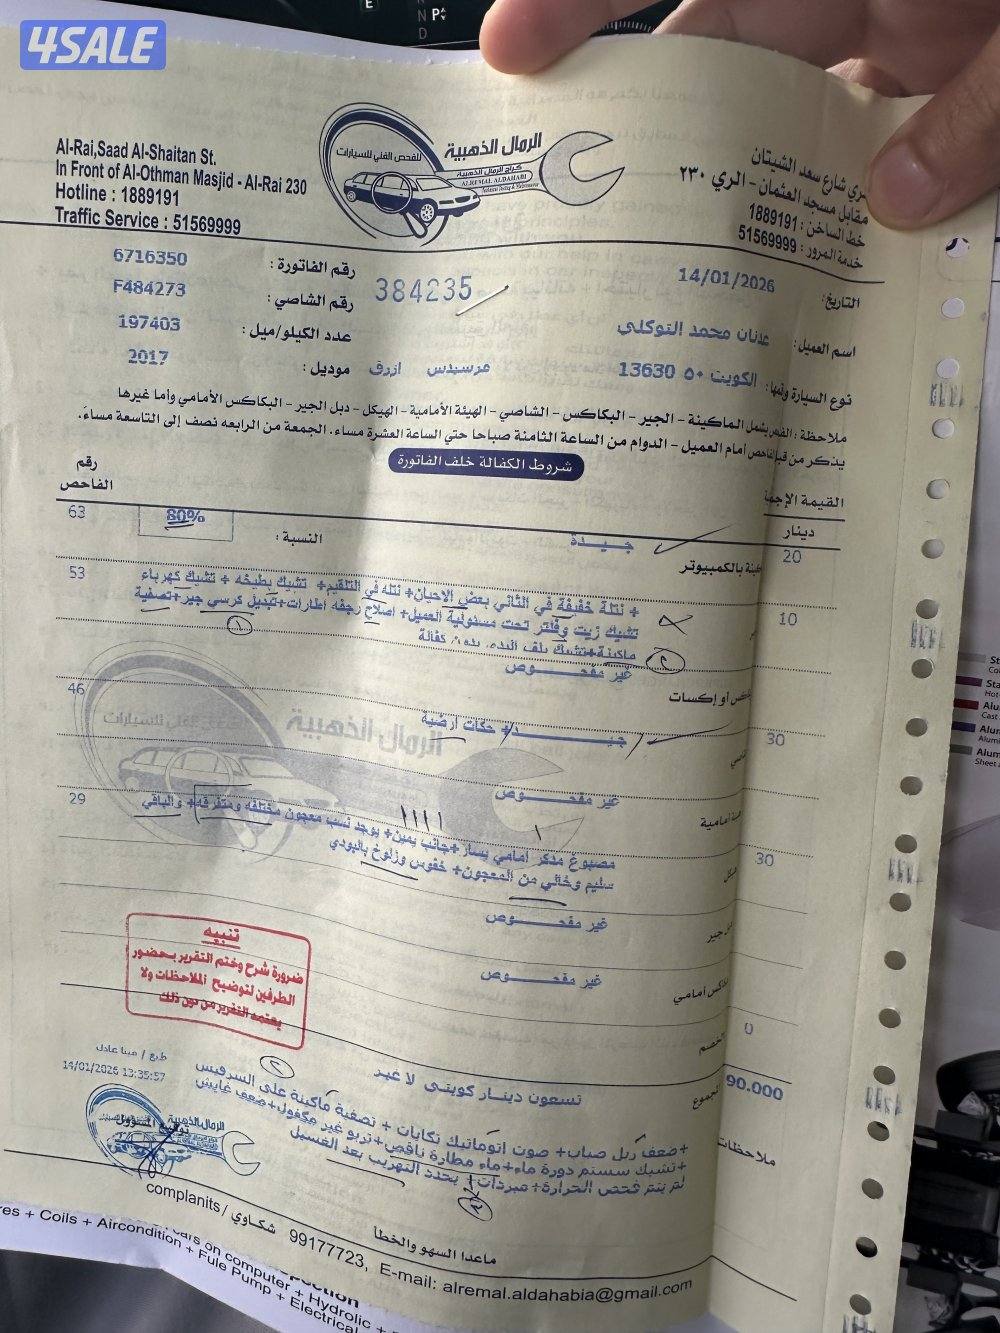 4SALE
Al-Rai,Saad Al-Shaitan St.
In Front of Al-Othman Masjid - Al-Rai 230
Hotline : 1889191
Traffic Service : 51569999
الرمال الذهبية
للفحص الفني للسيارات
كراج الرمال الذهبية
ALREMAL ALDAHABI
ري شارع سعد الشيتان
مقابل مسجد العثمان - الري ٢٣٠
خط الساخن : 1889191
خدمة المرور : 51569999
التاريخ: 14/01/2026
384235
رقم الفاتورة : 6716350
رقم الشاصي : F484273
اسم العميل: عدنان محمد التوكلي
عدد الكيلو/ميل : 197403
نوع السيارة ورقمها: الكويت ٥٠ 13630 مرسيدس ازرق
موديل : 2017
ملاحظة : الفحص يشمل الماكينة - الجير - البكاكس - الشاصي - الهيئة الأمامية - الهيكل - دبل الجير - البكاكس الأمامي وأما غيرها
يذكر من قبل الفاحص أمام العميل - الدوام من الساعة الثامنة صباحا حتي الساعة العشرة مساء. الجمعة من الرابعه نصف إلى التاسعة مساءً.
شروط الكفالة خلف الفاتورة
القيمة الإجم
دينار
رقم
الفاحص
20
كينة بالكمبيوتر
جيدة
النسبة : 80%
63
10
+ نتلة خفيفة في الثاني بعض الاحيان+ نتله في التلقيم+ تشيك بطيخه + تشيك كهرباء
تشيك زيت وفلتر تحت مسئولية العميل+ اصلاح رجفه اطارات+تبديل كرسي جير+تصفية
ماكينة+تشيك بلف البدي بدون كفالة
53
كس أو إكسات
غير مفحوص
30
جيد + حكات أرضية
46
ة أمامية
غير مفحوص
30
كل
مصبوغ مدكر أمامي يسار+جانب يمين+ يوجد نسب معجون مختلفه ومتفرقه+ والباقي
سليم وخالي من المعجون+ خفوس وزلوخ بالبودي
29
جير
غير مفحوص
كاكس أمامي
غير مفحوص
الخصم
0
جموع
90.000
تسعون دينار كويتى لا غير
تنبيه
ضرورة شرح وختم التقرير بحضور
الطرفين لتوضيح الملاحظات ولا
يعتمد التقرير من دون ذلك
طبع / مينا عادل
14/01/2026 13:35:57
ملاحظات
+ضعف ربل صباب+ صوت اتوماتيك تكايات + تصفية ماكينة على السرفيس
+تشيك سستم دورة ماء+ماء مطارة ناقص+تربو غير مكفول+ضعف غايش
لم يتم فحص الحرارة+مبردات+ يحدد التهريب بعد الغسيل
الرمال الذهبية
ماعدا السهو والخطأ
complanits / شكاوي / 99177723, E-mail: alremal.aldahabia@gmail.com
res + Coils + Aircondition + Fule Pump + Electrical
cars on computer + Hydrolic +